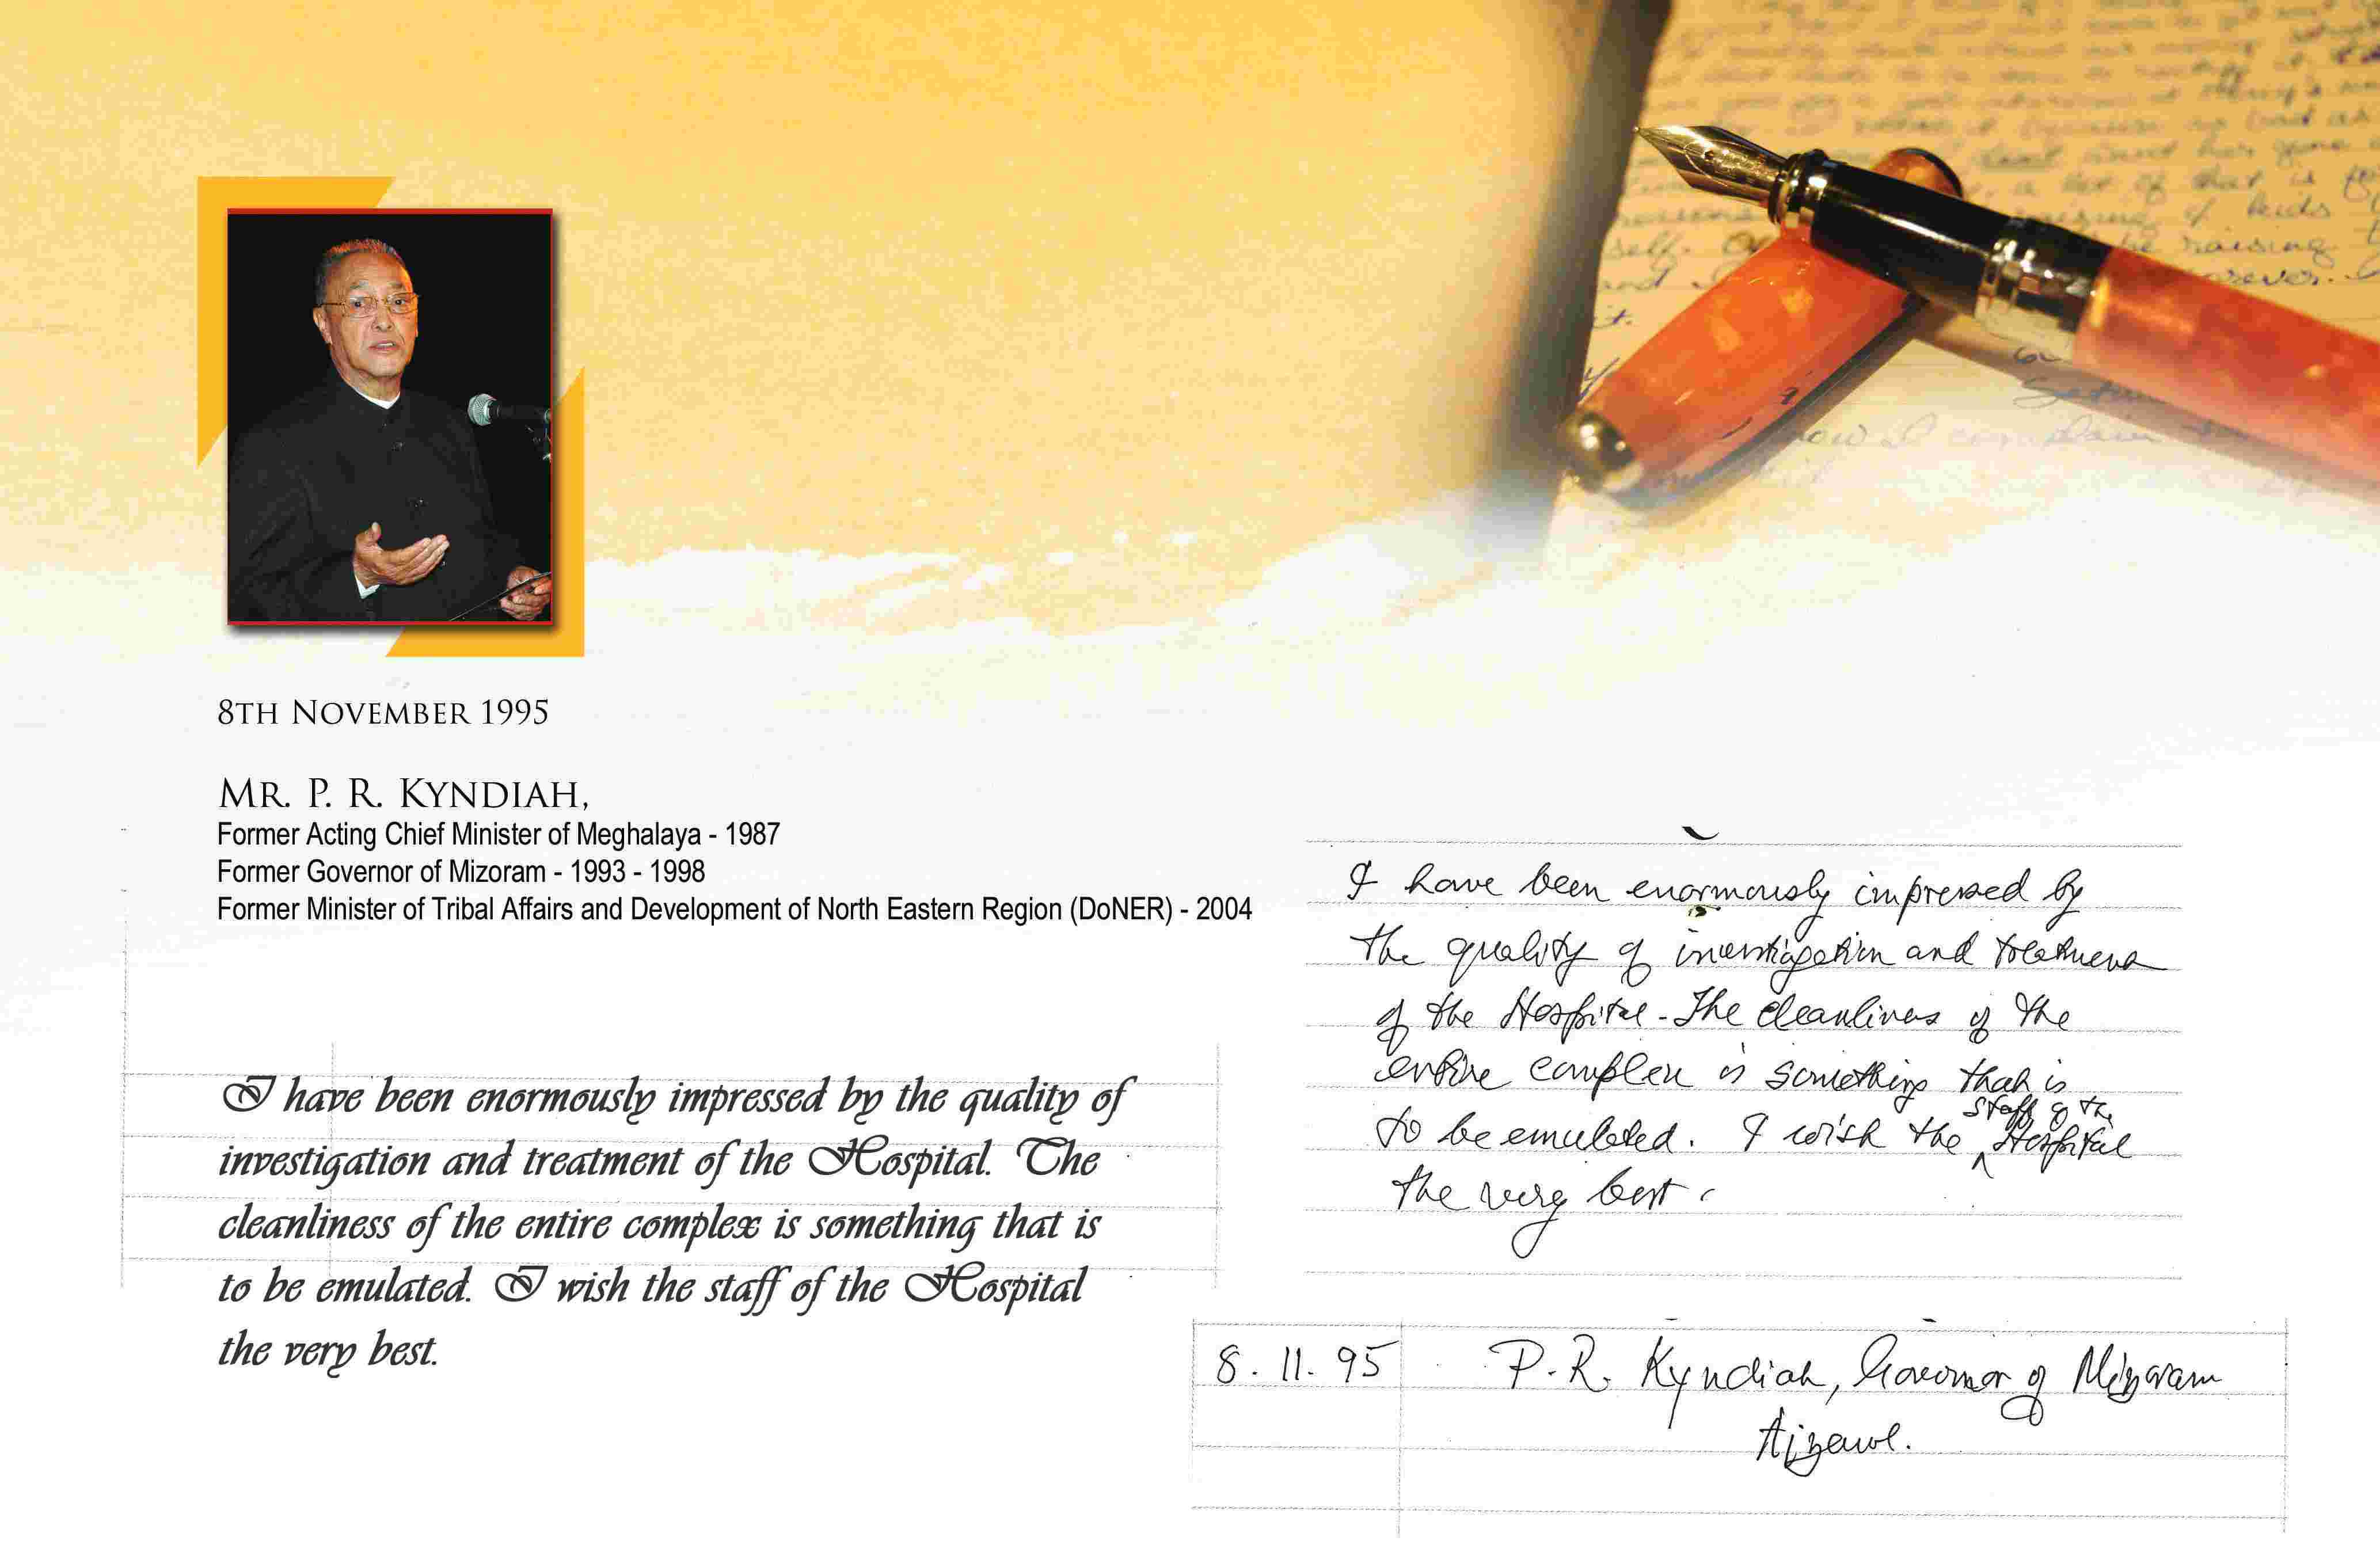 8TH NOVEMBER 1995
MR. P. R. KYNDIAH,
Former Acting Chief Minister of Meghalaya - 1987
Former Governor of Mizoram - 1993 - 1998
Former Minister of Tribal Affairs and Development of North Eastern Region (DoNER) - 2004
I have been enormously impressed by the quality of
investigation and treatment of the Hospital. The
cleanliness of the entire complex is something that is
to be emulated. I wish the staff of the Hospital
the very best.
I have been enormously impressed by
the quality of investigation and treatment
of the Hospital - The cleanliness of the
entire complex is something that is
to be emulated. I wish the staff of the Hospital
the very best.
8.11.95 P.R. Kyndiah, Governor of Mizoram
Aizawl.